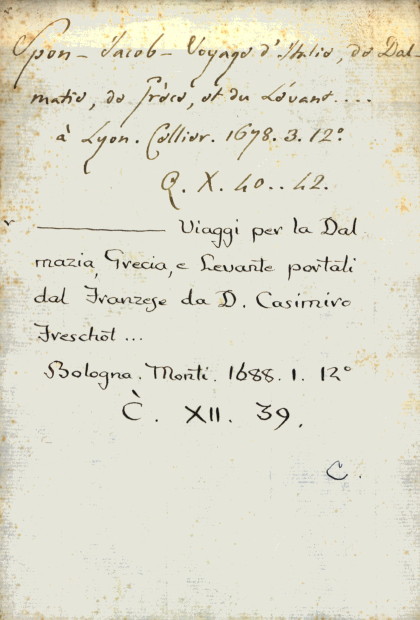 Spon - Jacob - Voyage d'Italie, de Dal-
matie, de Grèce, et du Levant....
à Lyon. Cellier. 1678. 3. 12°.
Q. X. 40.. 42.
———— Viaggi per la Dal
mazia, Grecia, e Levante portati
dal Franzese da D. Casimiro
Freschot...
Bologna. Monti. 1688. 1. 12°
C. XII. 39.
C.